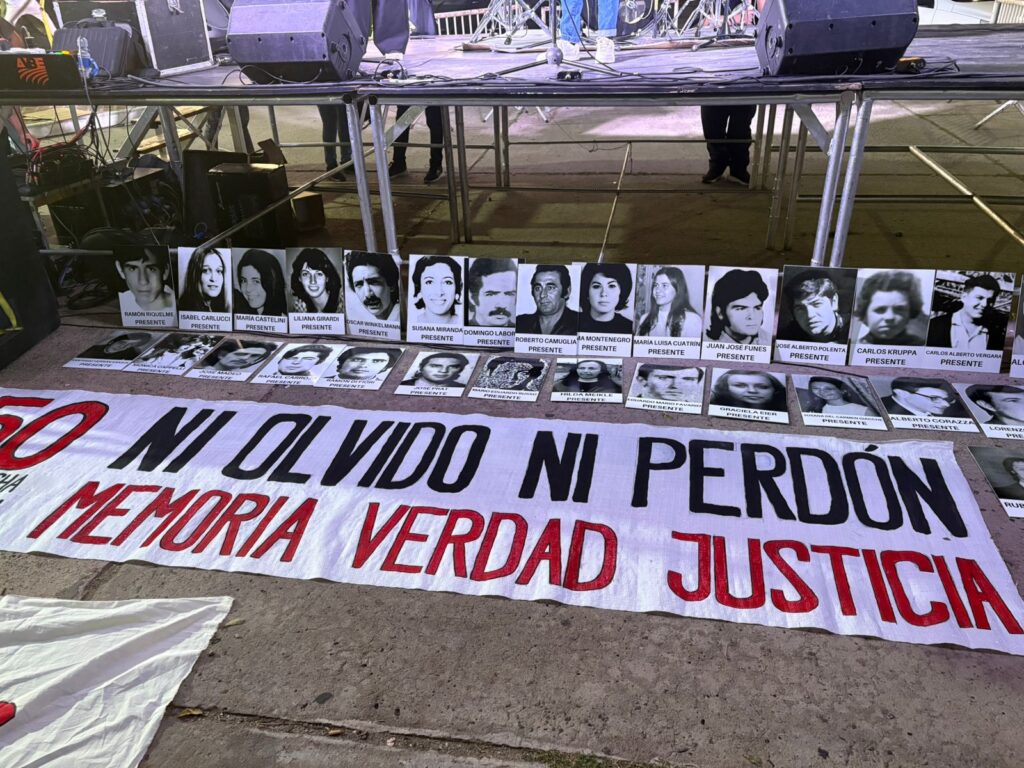 RAMÓN RIQUELME
PRESENTE
ISABEL CARLUCCI
PRESENTE
MARÍA CASTELINI
PRESENTE
LILIANA GIRARDI
PRESENTE
OSCAR WINKELMANN
PRESENTE
SUSANA MIRANDA
PRESENTE
DOMINGO LABOR
PRESENTE
ROBERTO CAMUGLIA
PRESENTE
MONTENEGRO
PRESENTE
MARIA LUISA CUATRÍN
PRESENTE
JUAN JOSÉ FUNES
PRESENTE
JOSÉ ALBERTO POLENTA
PRESENTE
CARLOS KRUPPA
PRESENTE
CARLOS ALBERTO VERGARA
PRESENTE
PRESENTE
PRESENTE
PRESENTE
PRESENTE
PRESENTE
JOSÉ PRAT
PRESENTE
PRESENTE
HILDA MEIKLE
PRESENTE
PRESENTE
GRACIELA EIER
PRESENTE
PRESENTE
ALBERTO CORAZZA
PRESENTE
LORENZO
PRESENTE
50 NI OLVIDO NI PERDÓN
MEMORIA VERDAD JUSTICIA